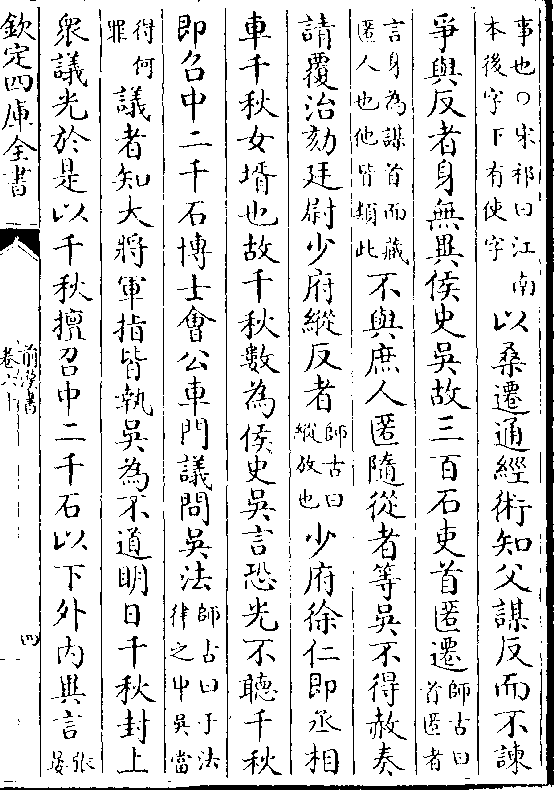 事也○宋祁曰江南
本後字下有使字
以桑遷通經術知父謀反而不諫
爭與反者身無異侯史吳故三百石吏首匿遷
師古曰
首匿者
言身為謀首而藏
匿人也他皆類此
不與庶人匿隨從者等吳不得赦奏
請覆治劾廷尉少府縱反者
師古曰
縱放也
少府徐仁即丞相
車千秋女壻也故千秋數為侯史吳言恐光不聽千秋
即召中二千石博士會公車門議問吳法
師古曰于法
律之中吳當
得何
罪
議者知大將軍指皆執吳為不道明日千秋封上
衆議光於是以千秋擅召中二千石以下外内異言
張
晏
欽定四庫全書
前漢書
卷六十
四